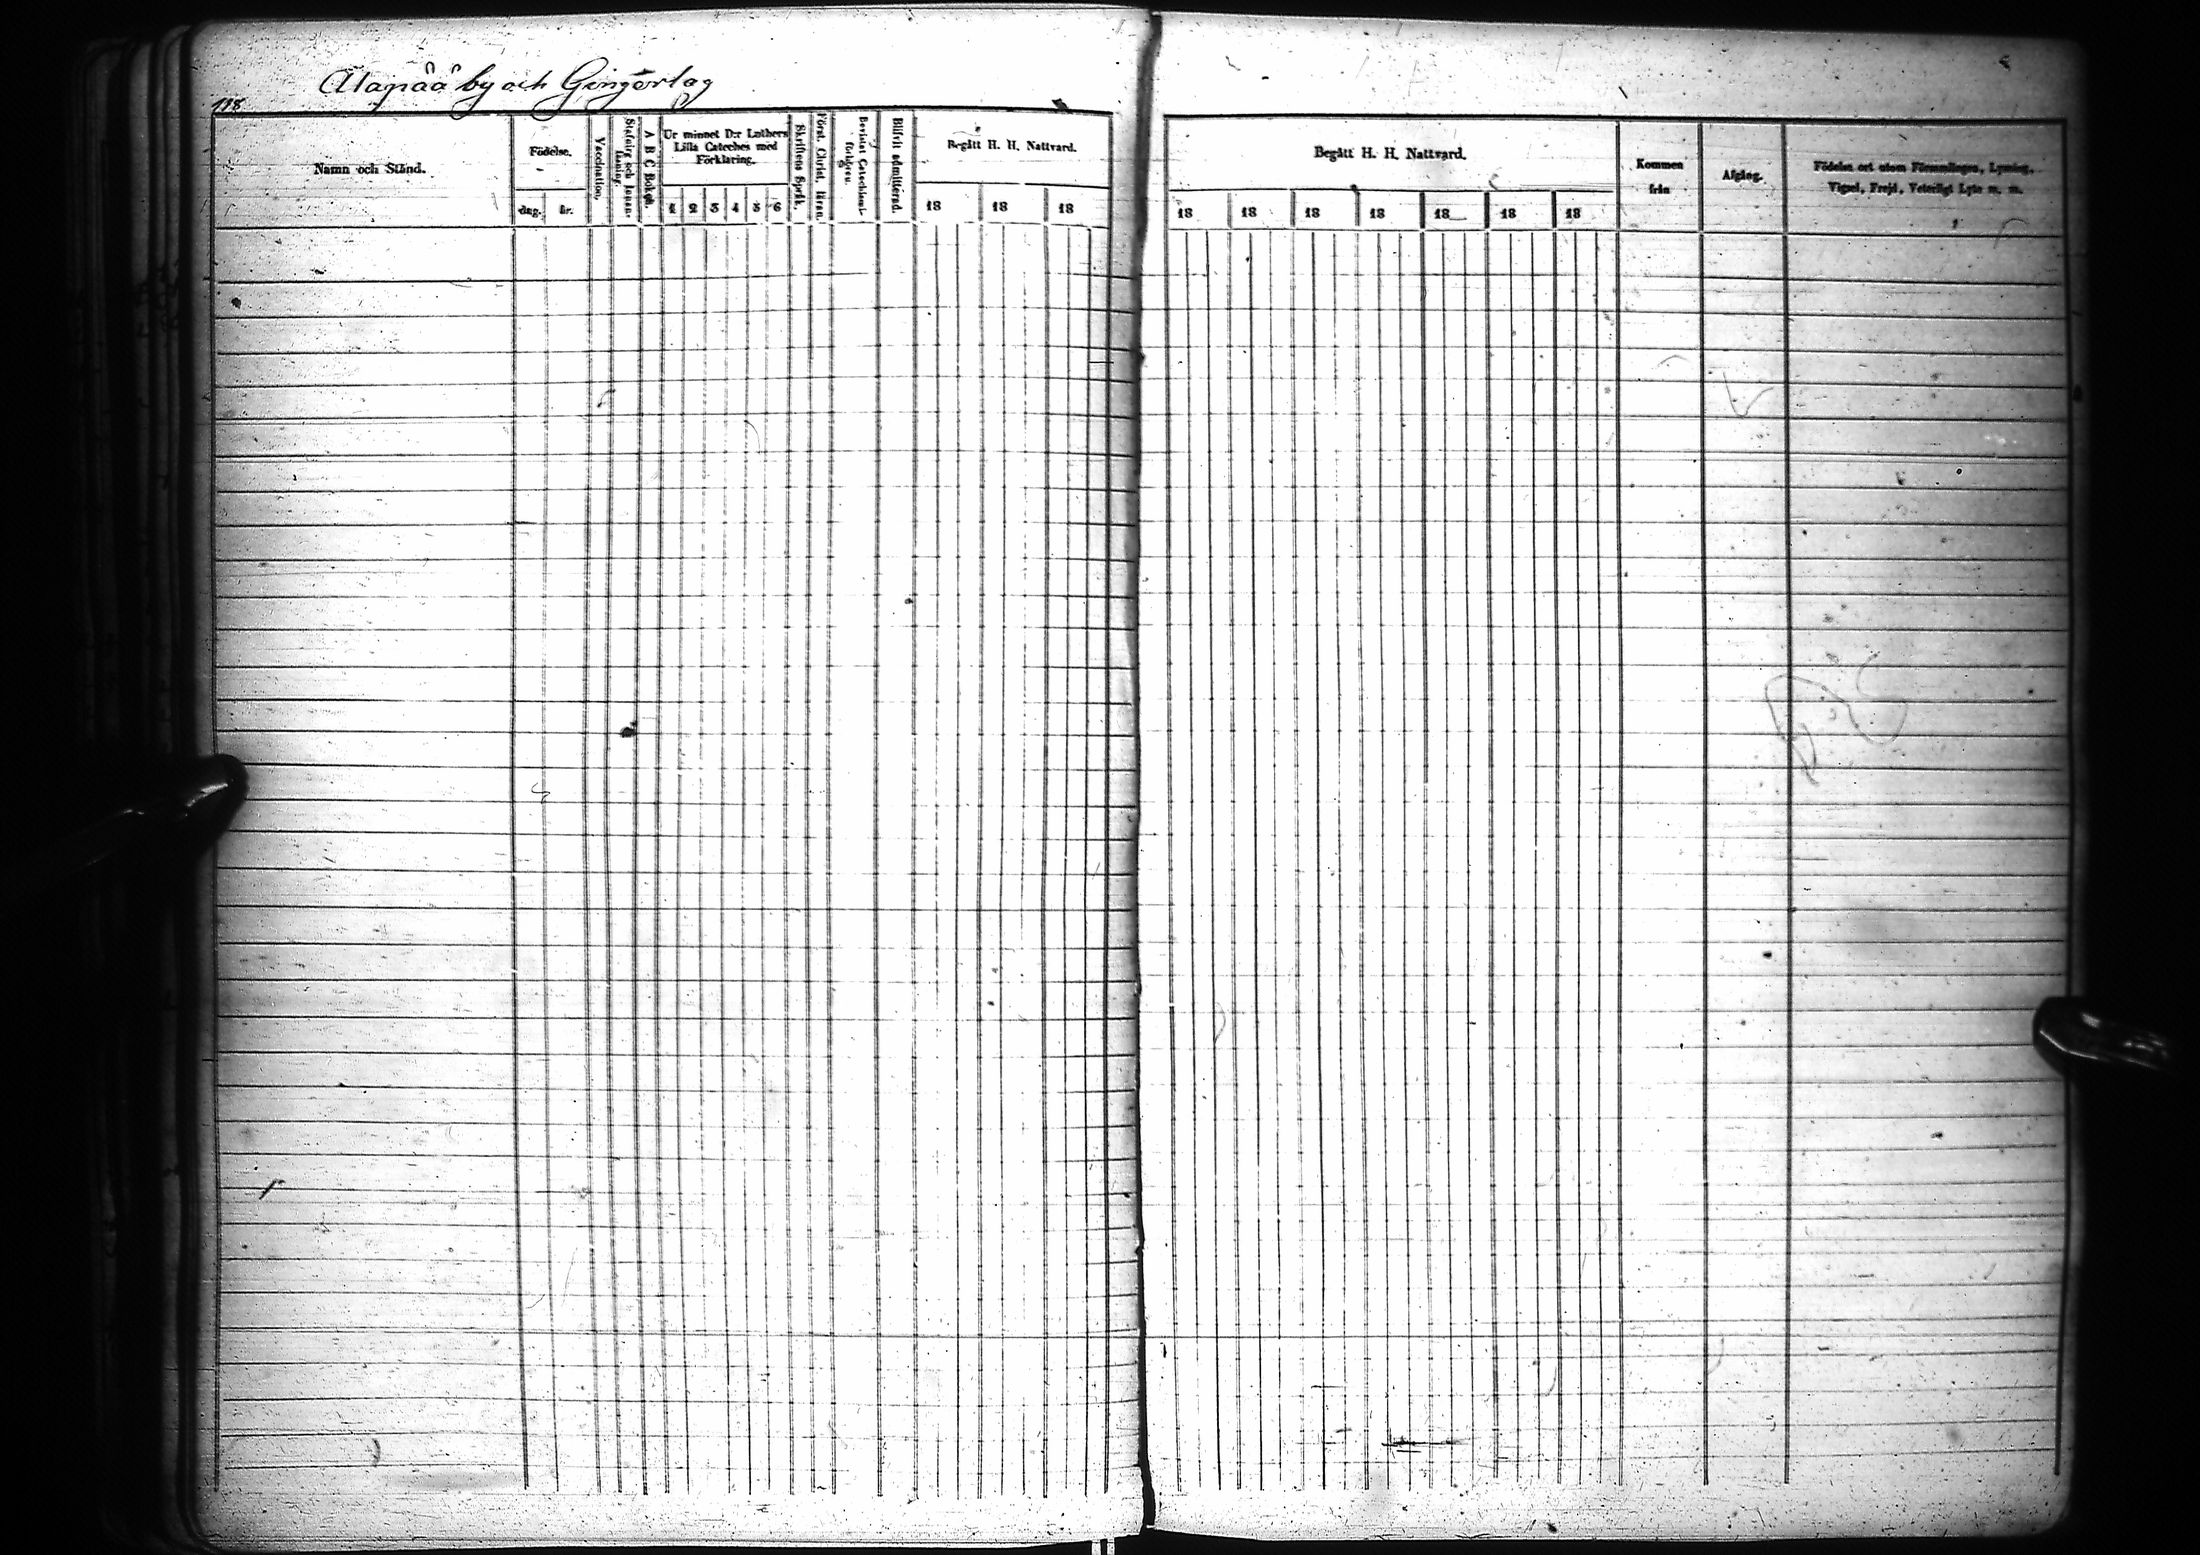 118
Alapää by och Gingerlag
Namn och Stånd.
Födelse.
dag. år.
Vaccination.
Stafning och Innan-
läsning.
A B C Boken.
Ur minnet D:r Luthers
Lilla Cateches med
Förklaring.
1 2 3 4 5 6
Skriftens Språk.
Först. Christ. läran.
Bevistat Catechismi-
förhören.
Blifvit admitterad.
Begått H. H. Nattvard.
18 18 18
Begått H. H. Nattvard.
18 18 18 18 18 18 18
Kommen
från
Afgång.
Födelse ort utom Församlingen, Lysning,
Vigsel, Frejd, Veterligt Lyte m. m.